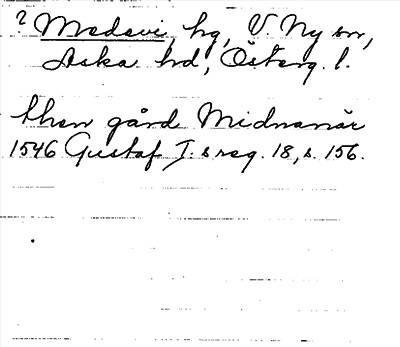 ? Medevi hg, V. Ny sn,
Aska hd, Österg. l.
then gård Midnanär
1546 Gustaf I:s reg. 18, s. 156.